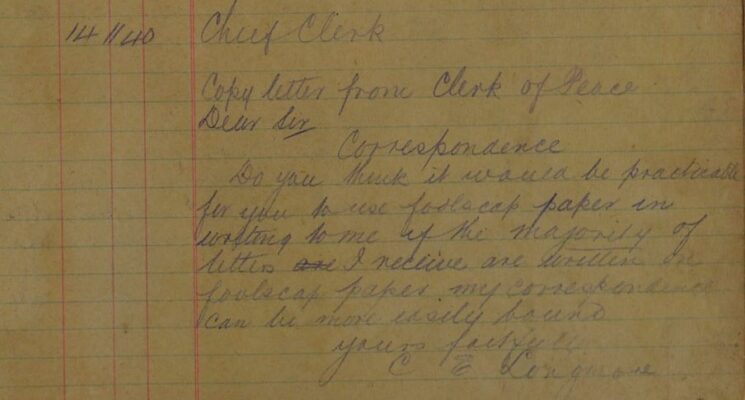 14 11 40 Chief Clerk
Copy letter from Clerk of Peace
Dear Sir
Correspondence
Do you think it would be practicable
for you to use foolscap paper in
writing to me if the majority of
letters are I receive are written on
foolscap paper my correspondence
can be more easily bound
yours faithfully
C E Longmore